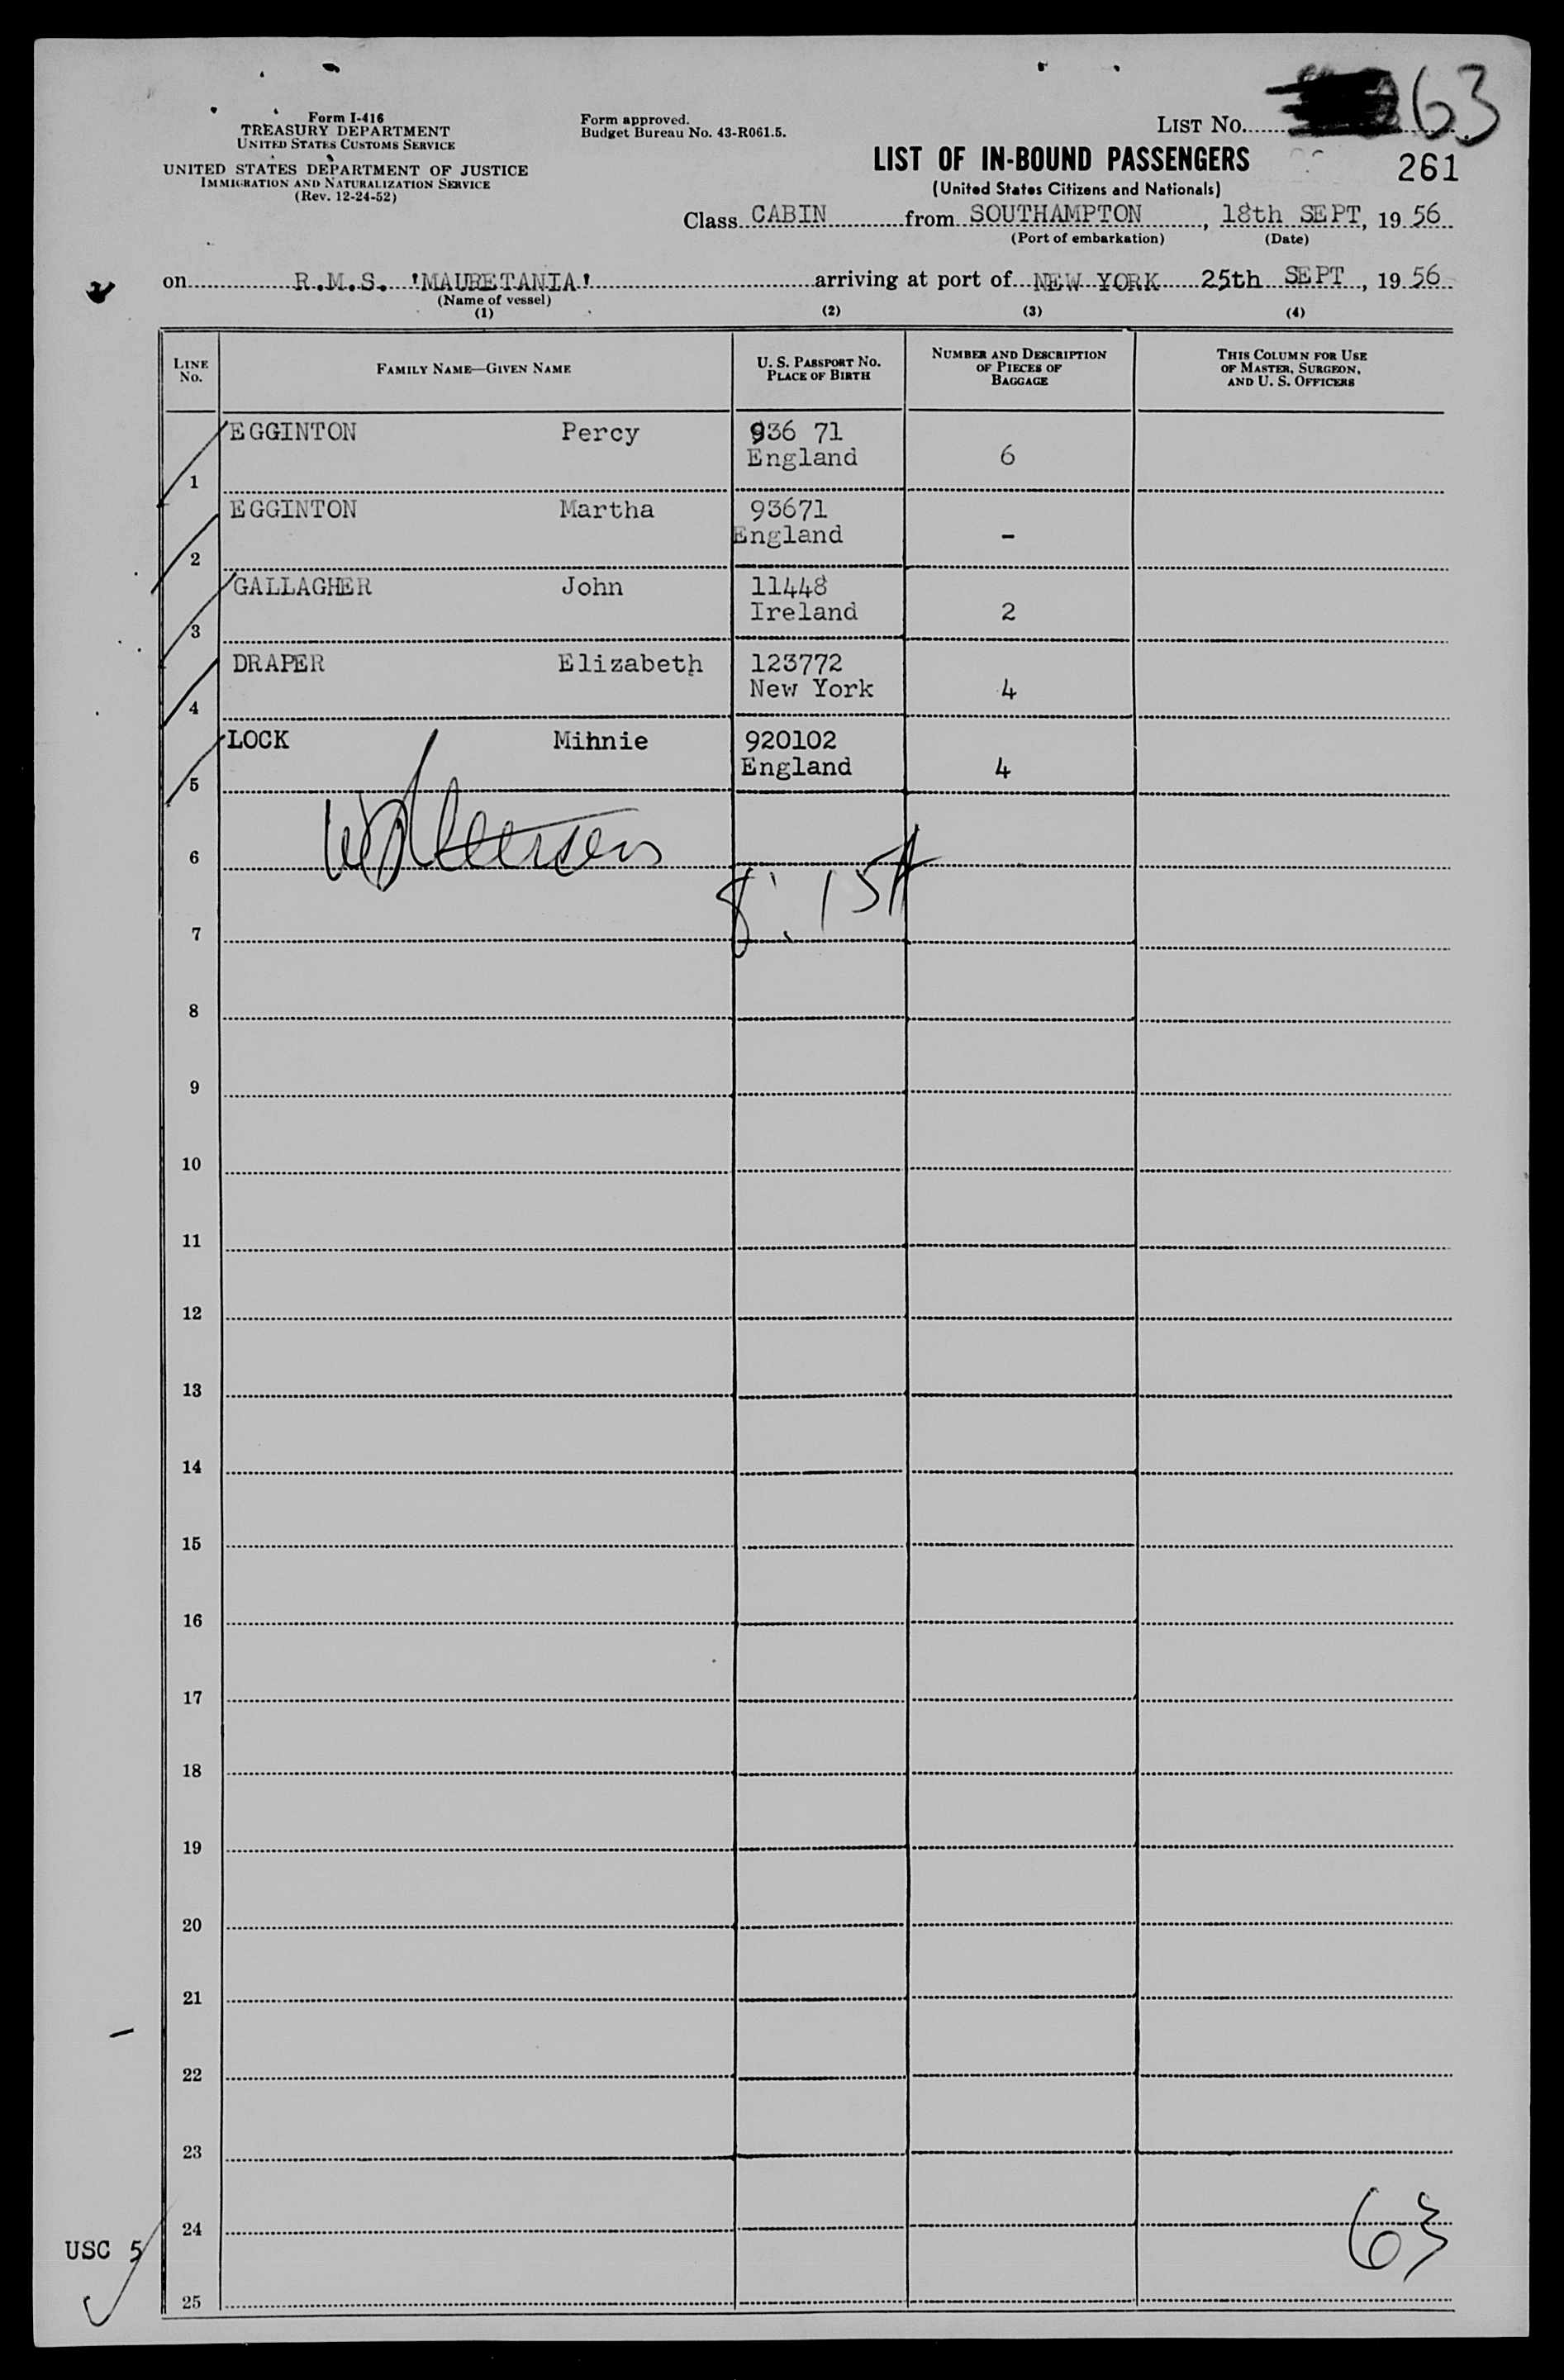 Form I-416
TREASURY DEPARTMENT
UNITED STATES CUSTOMS SERVICE
UNITED STATES DEPARTMENT OF JUSTICE
IMMIGRATION AND NATURALIZATION SERVICE
(Rev. 12-24-52)
Form approved.
Budget Bureau No. 43-R061.5.
LIST No. 63
LIST OF IN-BOUND PASSENGERS
261
(United States Citizens and Nationals)
Class CABIN from SOUTHAMPTON, 18th SEPT, 1956
(Port of embarkation) (Date)
on R.M.S. 'MAURETANIA' arriving at port of NEW YORK 25th SEPT, 1956
(Name of vessel)
(1) (2) (3) (4)
LINE No. FAMILY NAME—GIVEN NAME U. S. PASSPORT No. PLACE OF BIRTH NUMBER AND DESCRIPTION OF PIECES OF BAGGAGE THIS COLUMN FOR USE OF MASTER, SURGEON, AND U. S. OFFICERS
EGGINTON Percy 936 71
1 England 6
EGGINTON Martha 93671
2 England -
GALLAGHER John 11448
3 Ireland 2
DRAPER Elizabeth 123772
4 New York 4
LOCK Mihnie 920102
5 England 4
6
7
8
9
10
11
12
13
14
15
16
17
18
19
20
21
22
23
24 63
USC 5
25